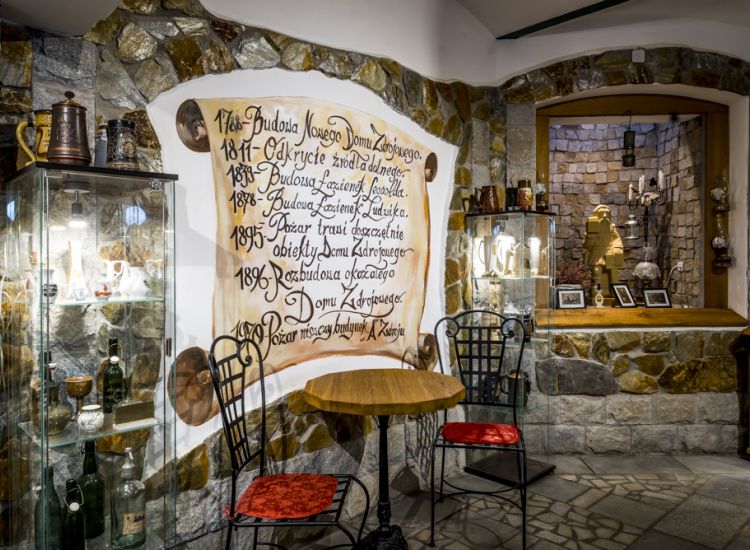 1788-Budowa Nowego Domu Zdrojowego.
1817-Odkrycie źródła dolnego.
1839-Budowa Łazienek Leopolda.
1878-Budowa Łazienek Ludwika.
1895-Pożar trawi doszczętnie
obiekty Domu Zdrojowego
1896-Rozbudowa okazałego
Domu Zdrojowego.
1979 Pożar niszczy budynek „A" Zdroju